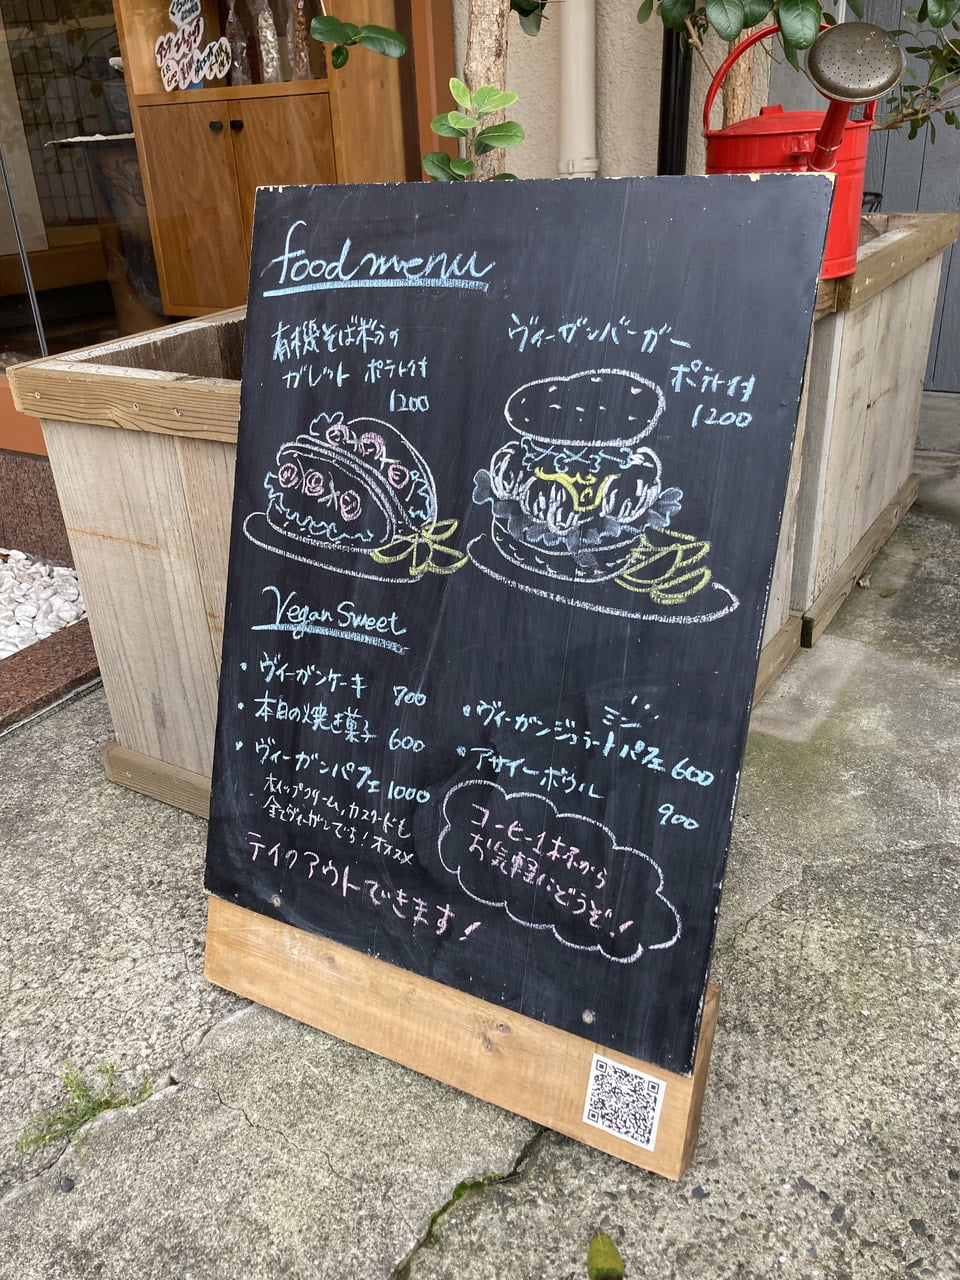 food menu
有機そば粉の
ガレット ポテト付
1200
ヴィーガンバーガー
ポテト付
1200
Vegan Sweet
・ヴィーガンケーキ 700
・本日の焼き菓子 600
・ヴィーガンパフェ 1000
ホイップクリーム、カスタードも
全てヴィーガンです! オススメ
ミニ
・ヴィーガンジェラートパフェ 600
・アサイーボウル
900
コーヒー1杯から
お気軽にどうぞ!
テイクアウトできます!